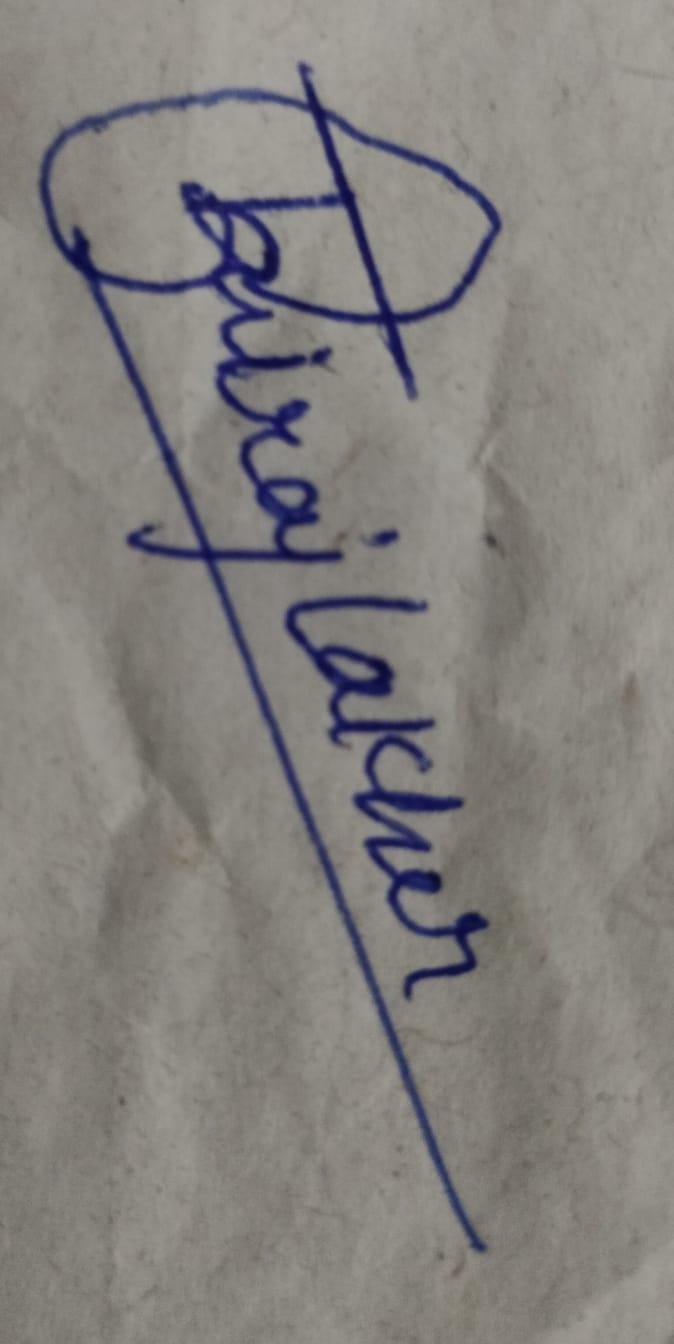 Jairaj lakher